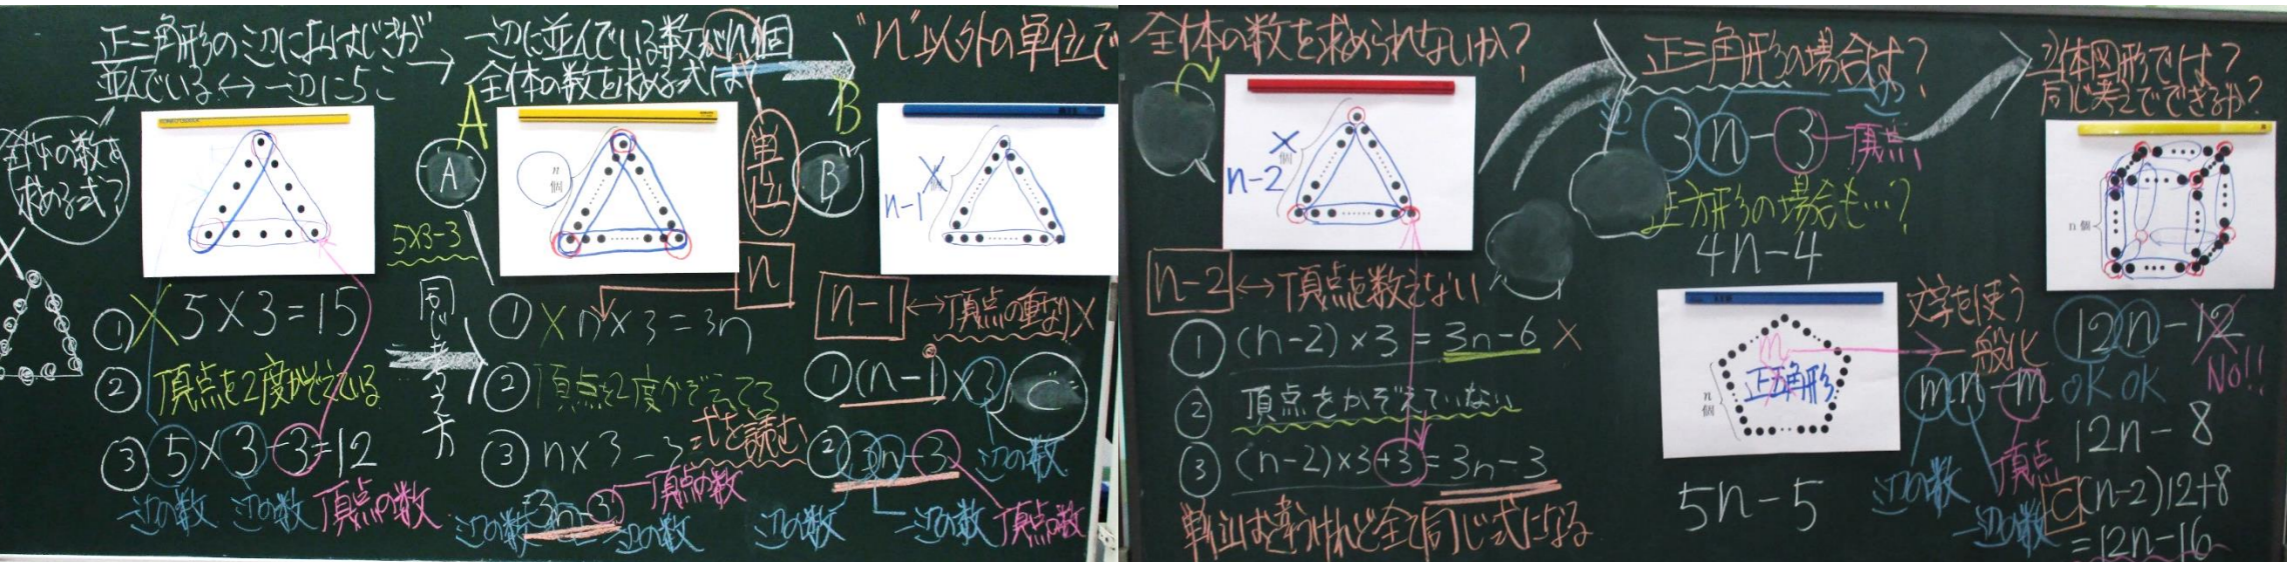 正三角形の辺におはじきが
並んでいる↔一辺に5こ
全体の数を
求める式?
① × 5×3=15
② 頂点を2度かぞえている
③ 5×3-3=12
一辺の数 辺の数 頂点の数
→ 一辺に並んでいる数がn個
全体の数を求める式は?
A
A
n
個
単位
5×3-3
同じ考え方
n
① × n×3=3n
② 頂点を2度かぞえてる
③ n×3-3 式を読む
3n-3 頂点の数
辺の数 一辺の数
"n"以外の単位で
B
B
n-1
個
n-1 ↔ 頂点の重なり×
①(n-1)×3
C
② 3n-3 辺の数
辺の数 一辺の数 頂点の数
全体の数を求められないか?
×
n-2
個
n-2 ↔ 頂点を数えない
① (n-2)×3=3n-6 ×
② 頂点をかぞえていない
③ (n-2)×3+3=3n-3
単位は違うけれど全て同じ式になる
正三角形の場合は?
3n-3 頂点
正方形の場合も…?
4n-4
n
個
正五角形
5n-5
文字を使う
一般化
mn-m
辺の数 頂点
一辺の数
立体図形では?
同じ考えでできるか?
n個
12n-12
OK OK No!!
12n-8
C (n-2)12+8
=12n-16